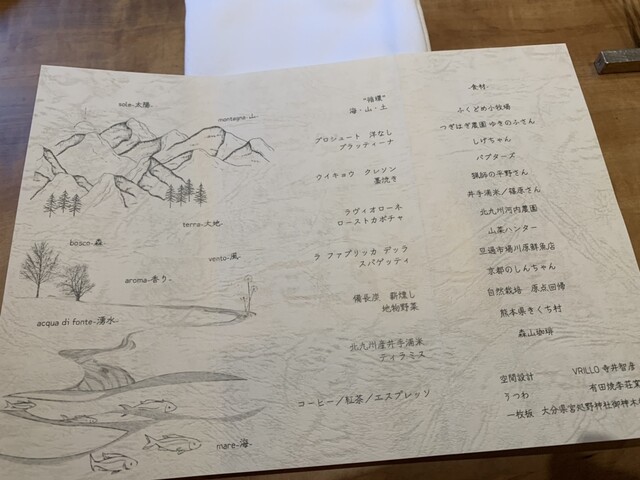 sole-太陽-
montagna-山-
terra-大地-
bosco-森
vento-風-
aroma-香り-
acqua di fonte-湧水-
mare-海-
"循環"
海・山・土
プロシュート 洋なし
ブラッティーナ
ウイキョウ クレソン
藁焼き
ラヴィオローネ
ローストカボチャ
ラ ファブリッカ デッラ
スパゲッティ
備長炭 薪燻し
地物野菜
北九州産井手湧米
ティラミス
コーヒー/紅茶/エスプレッソ
-食材-
ふくどめ小牧場
つぎはぎ農園 ゆきのふさん
しげちゃん
バブターズ
猟師の平野さん
井手湧米/篠原さん
北九州河内農園
山菜ハンター
旦過市場川原鮮魚店
京都のしんちゃん
自然栽培 原点回帰
熊本県きくち村
森山珈琲
空間設計 VRILLO 寺井智彦
うつわ 有田焼李荘窯
一枚板 大分県宮処野神社御神木